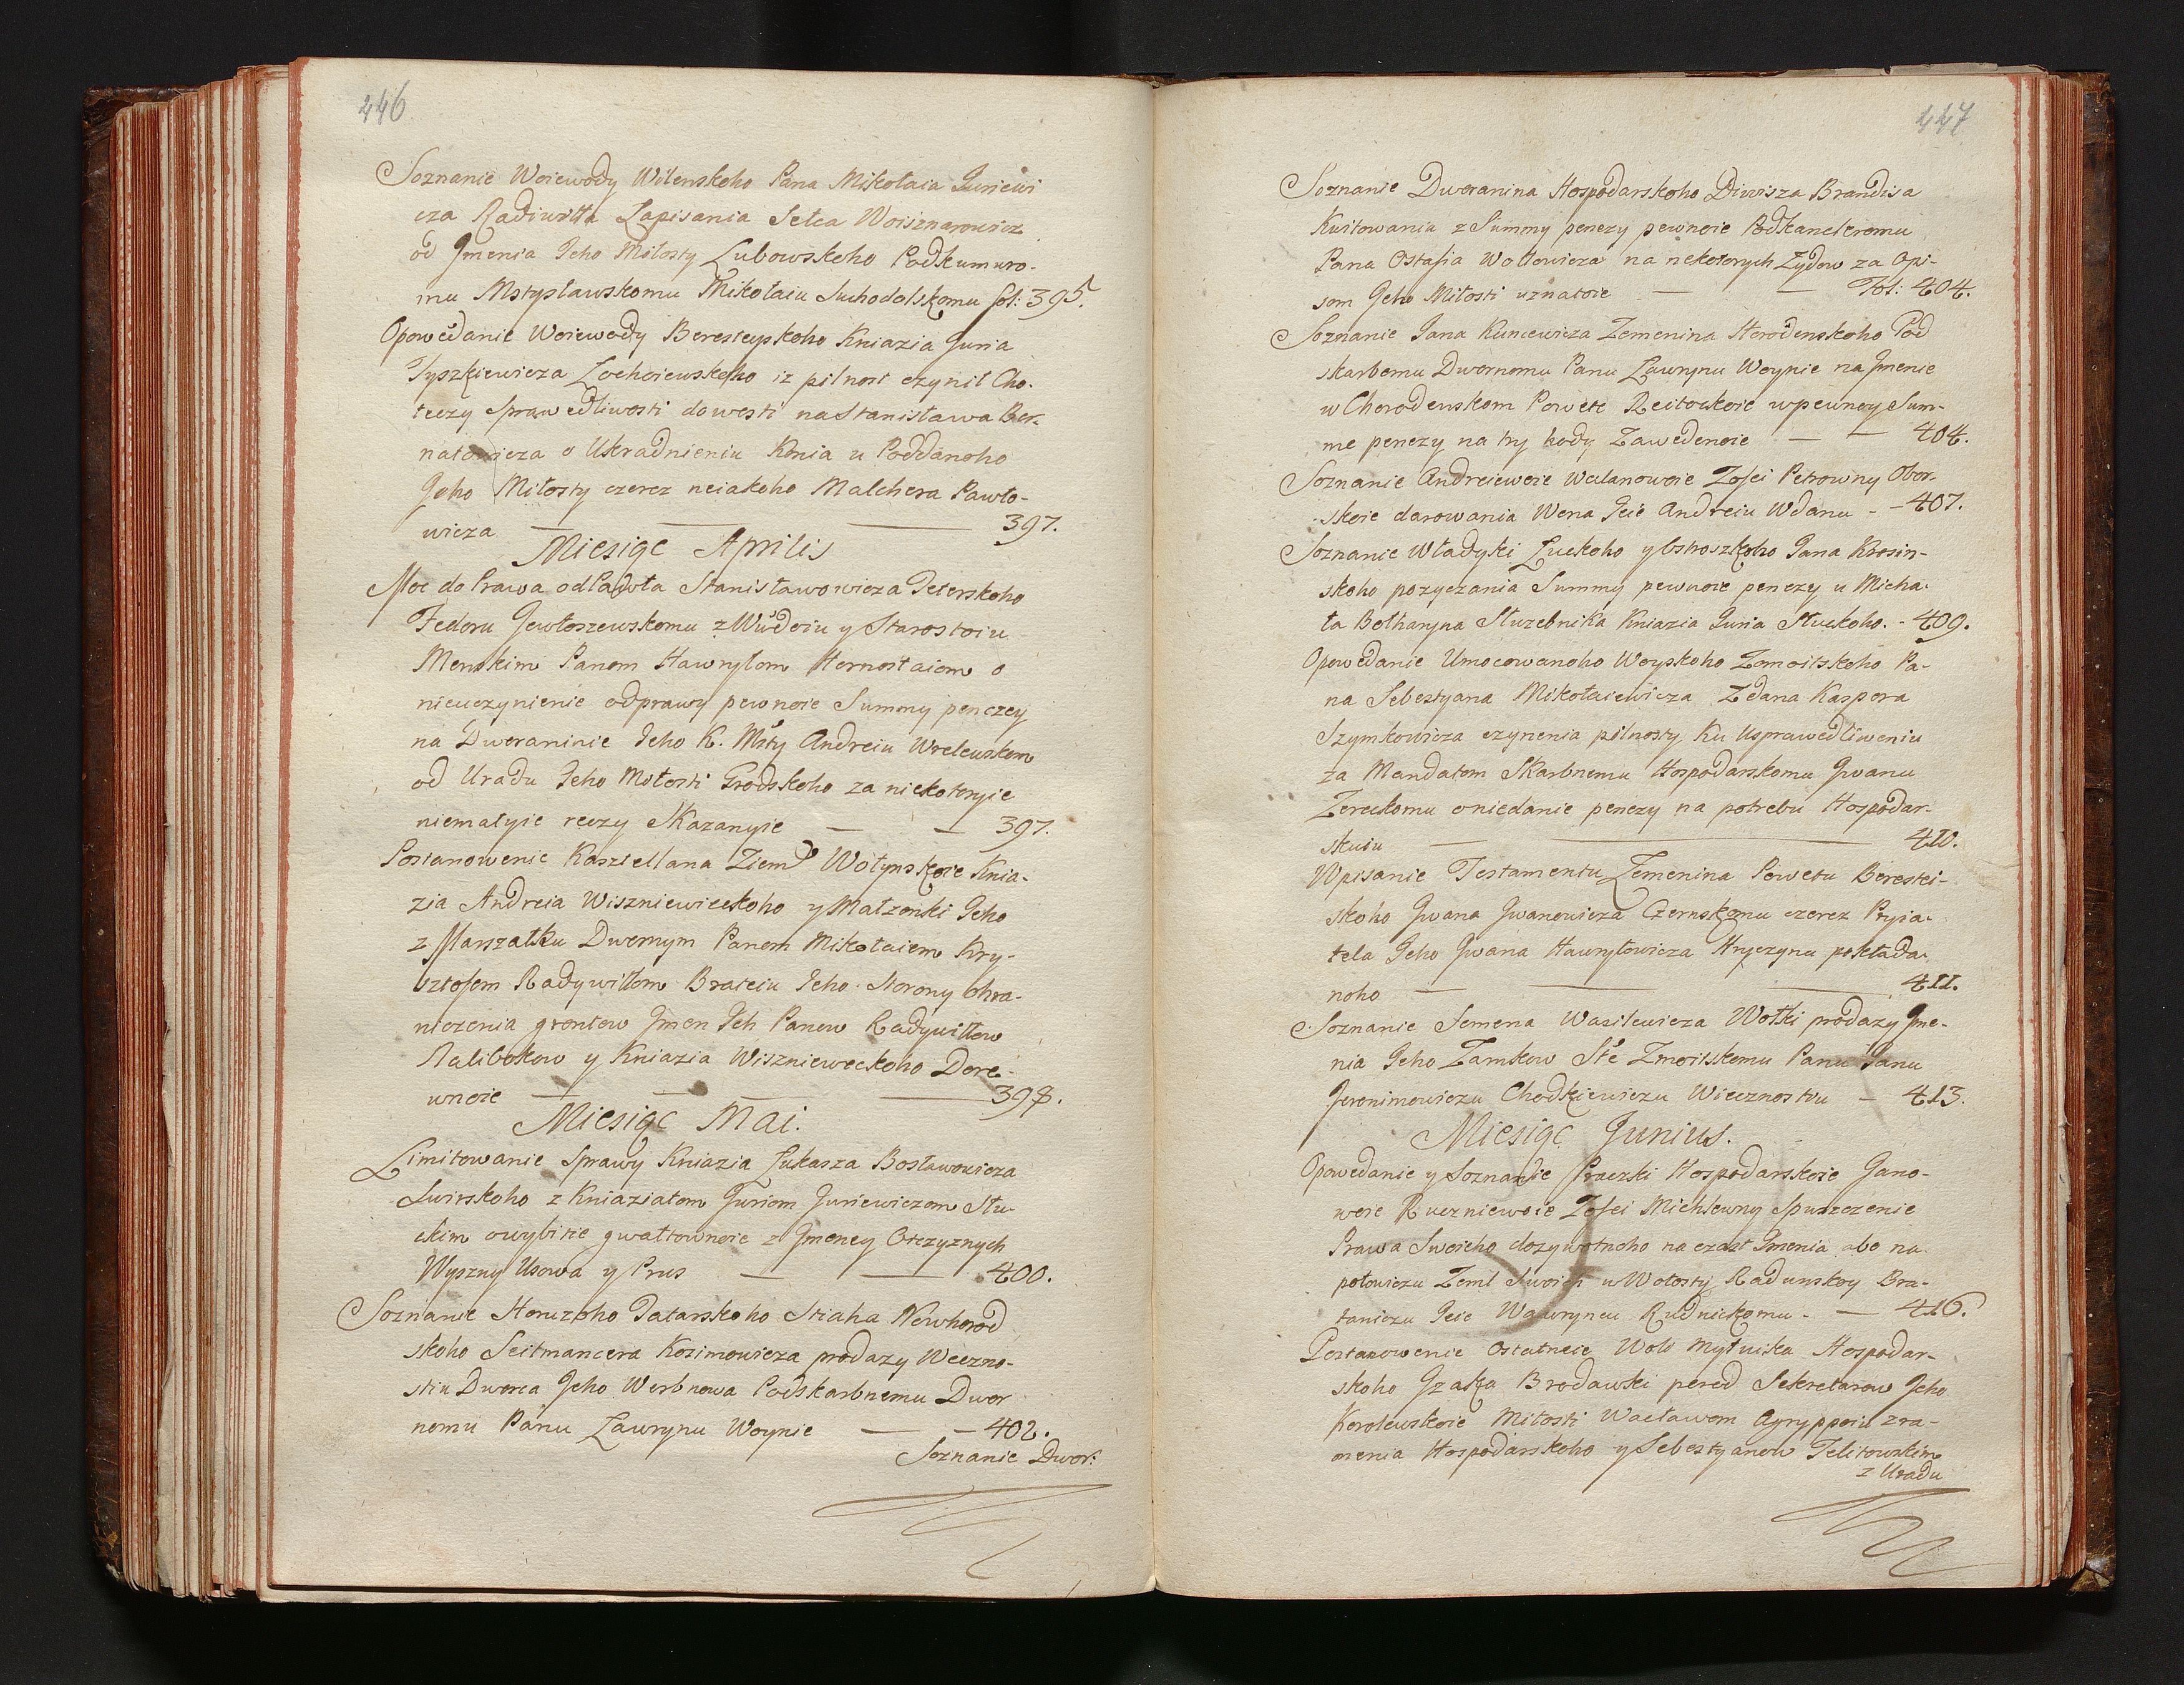 446
Soznanie Woiewody Wilenskoho Pana Mikołaia Juriewi
cza Radiwiłła Zapisania Selca Woisznarowicz
od Jmenia Jeho Miłosty Lubowskoho Podkumuro-
mu Mstysławskomu Mikołaiu Suchodolskomu fol: 395.
Opowedanie Woiewody Beresteyskoho Kniazia Juria
Tyszkiewicza Łohoiewskoho iz pilnost czynił Cho-
teczy Sprawedliwosti dowesti na Stanisława Ber-
natowicza o Ukradnieniu Konia u Poddanoho
Jeho Miłosty czerez neiakoho Malchera Pawło-
wicza — — — 397.
Miesiąc Aprilis
Moc do Prawa od Pawła Stanisławowicza Jeterskoho
Fedoru Jewłoszewskomu z Wudoiu y Starostoiu
Menskim Panom Hawryłom Hornostaiom o
nieuczynienie odprawy pewnoie Summy penezey
na Dworaninie Jeho K. Msty Andreiu Wrelewskom
od Uradu Jeho Miłosti Grodskoho za niekotoryie
niemałyie reczy Skazanyie — — 397.
Postanowenie Kasztellana Ziemi Wołynskoie Knia-
zia Andreia Wiszniewieckoho y Małzonki Jeho
z Marszałku Dwornym Panom Mikołaiem Kry-
sztofom Radywiłłom Brateiu Jeho Storony ohra-
niczenia gruntow Jmen Ich Panow Radywiłłow
Nalibokow y Kniazia Wiszniewieckoho Dore-
wnoie — — — — 398.
Miesiąc Mai.
Limitowanie Sprawy Kniazia Łukasza Bosławowicza
Swirskoho z Kniaziatom Juriom Juriewiczom Słu-
ckim o wybitie gwałtownoie z Jmeney Otczyznych
Wyszny Usowa y Prus — — 400.
Soznanie Horuzoho Tatarskoho Stiaha Nowhorod
skoho Seitmancera Kosimowicza prodazy Weczno-
stiu Dworca Jeho Worbnowa Podskarbnemu Dwor
nomu Panu Ławrynu Woynie — — 402.
Soznanie Dwor:
447
Soznanie Dworanina Hospodarskoho Diwisza Brandisa
Kwitowania z Summy penezy pewnoie Podkancleromu
Pana Ostafia Wołłowicza na nekotorych Zydow za Opi-
som Jeho Miłosti uznatoie — — Fol: 404.
Soznanie Jana Kuncewicza Zemenina Horodenskoho Pod
skarbomu Dwornomu Panu Ławrynu Woynie na Jmenie
w Chorodenskom Powete Reitowskoie w pewnoy Sum-
me penezy na try hody Zawedenoie — — 404.
Soznanie Andreiewoie Wolanowoie Zofei Petrowny Obor-
skoie darowania Wena Jeie Andreiu Wdanu - - 407.
Soznanie Władyki Łuckoho y Ostroszkoho Jana Krosin-
skoho pozyczania Summy pewnoie penezy u Micha-
ła Bolharyna Słuzebnika Kniazia Juria Słuckoho. - 409.
Opowedanie Umocowanoho Woyskoho Zomoitskoho Pa-
na Sebestyana Mikołaiewicza Zdana Kaspora
Szymkowicza czynenia pilnosty Ku Usprawedliweniu
za Mandatom Skarbnemu Hospodarskomu Jwanu
Zereckomu o niedanie penezy na potrebu Hospodar-
skuiu — — 410.
Wpisanie Testamentu Zemenina Powetu Berestei-
skoho Jwana Jwanowicza Czernskomu czerez Pryia-
tela Jeho Jwana Hawryłowicza Hryczynu pokłada-
noho — — — 411.
Soznanie Semena Wasilewicza Wołki prodazy Jme-
nia Jeho Zamkow Ste Zmoitskomu Panu Janu
Jeronimowiczu Chodkiewiczu Wiecznostiu — 413.
Miesiąc Junius.
Opowedanie y Soznanie Praczki Hospodarskoie Jano-
woie Ruczniewoie Zofei Michłewny Spuszczenie
Prawa Swoieho dozywotnoho na czast Jmenia abo na
połowiczu Zeml Swoich w Wołosty Radunskoy Bra-
taniczu Jeie Wawryncu Rudnickomu - — 416.
Postanowenie Ostatnoie Woło Mytnika Hospodar-
skoho Jzaka Brodawki pered Sekretarow Jeho
Korolewskoie Miłosti Wacławom Agryppoiu z ra-
menia Hospodarskoho y Sebestyanom Jelitowskim
z Uradu